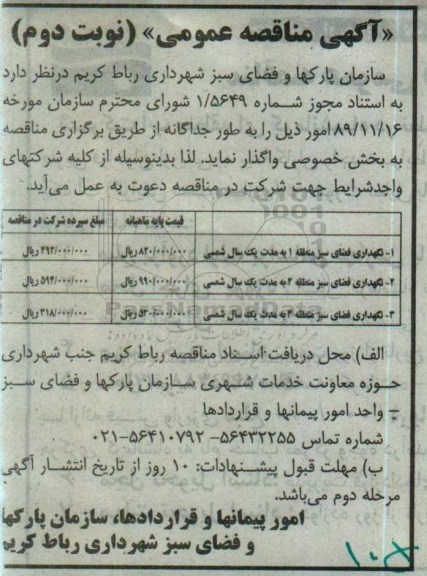 «آگهی مناقصه عمومی» (نوبت دوم)
سازمان پارکها و فضای سبز شهرداری رباط کریم درنظر دارد
به استناد مجوز شماره ۱/۵۶۴۹ شورای محترم سازمان مورخه
۸۹/۱۱/۱۶ امور ذیل را به طور جداگانه از طریق برگزاری مناقصه
به بخش خصوصی واگذار نماید. لذا بدینوسیله از کلیه شرکتهای
واجدشرایط جهت شرکت در مناقصه دعوت به عمل می‌آید.
قیمت پایه ماهیانه مبلغ سپرده شرکت در مناقصه
۱- نگهداری فضای سبز منطقه ۱ به مدت یک سال شمسی ۸۲۰/۰۰۰/۰۰۰ ریال ۴۹۲/۰۰۰/۰۰۰ ریال
۲- نگهداری فضای سبز منطقه ۲ به مدت یک سال شمسی ۹۹۰/۰۰۰/۰۰۰ ریال ۵۹۴/۰۰۰/۰۰۰ ریال
۳- نگهداری فضای سبز منطقه ۳ به مدت یک سال شمسی ۵۳۰/۰۰۰/۰۰۰ ریال ۳۱۸/۰۰۰/۰۰۰ ریال
الف) محل دریافت اسناد مناقصه رباط کریم جنب شهرداری
حوزه معاونت خدمات شهری سازمان پارکها و فضای سبز
– واحد امور پیمانها و قراردادها
شماره تماس ۵۶۴۳۲۲۵۵- ۵۶۴۱۰۷۹۲-۰۲۱
ب) مهلت قبول پیشنهادات: ۱۰ روز از تاریخ انتشار آگهی
مرحله دوم می‌باشد.
امور پیمانها و قراردادها، سازمان پارکها
و فضای سبز شهرداری رباط کریم